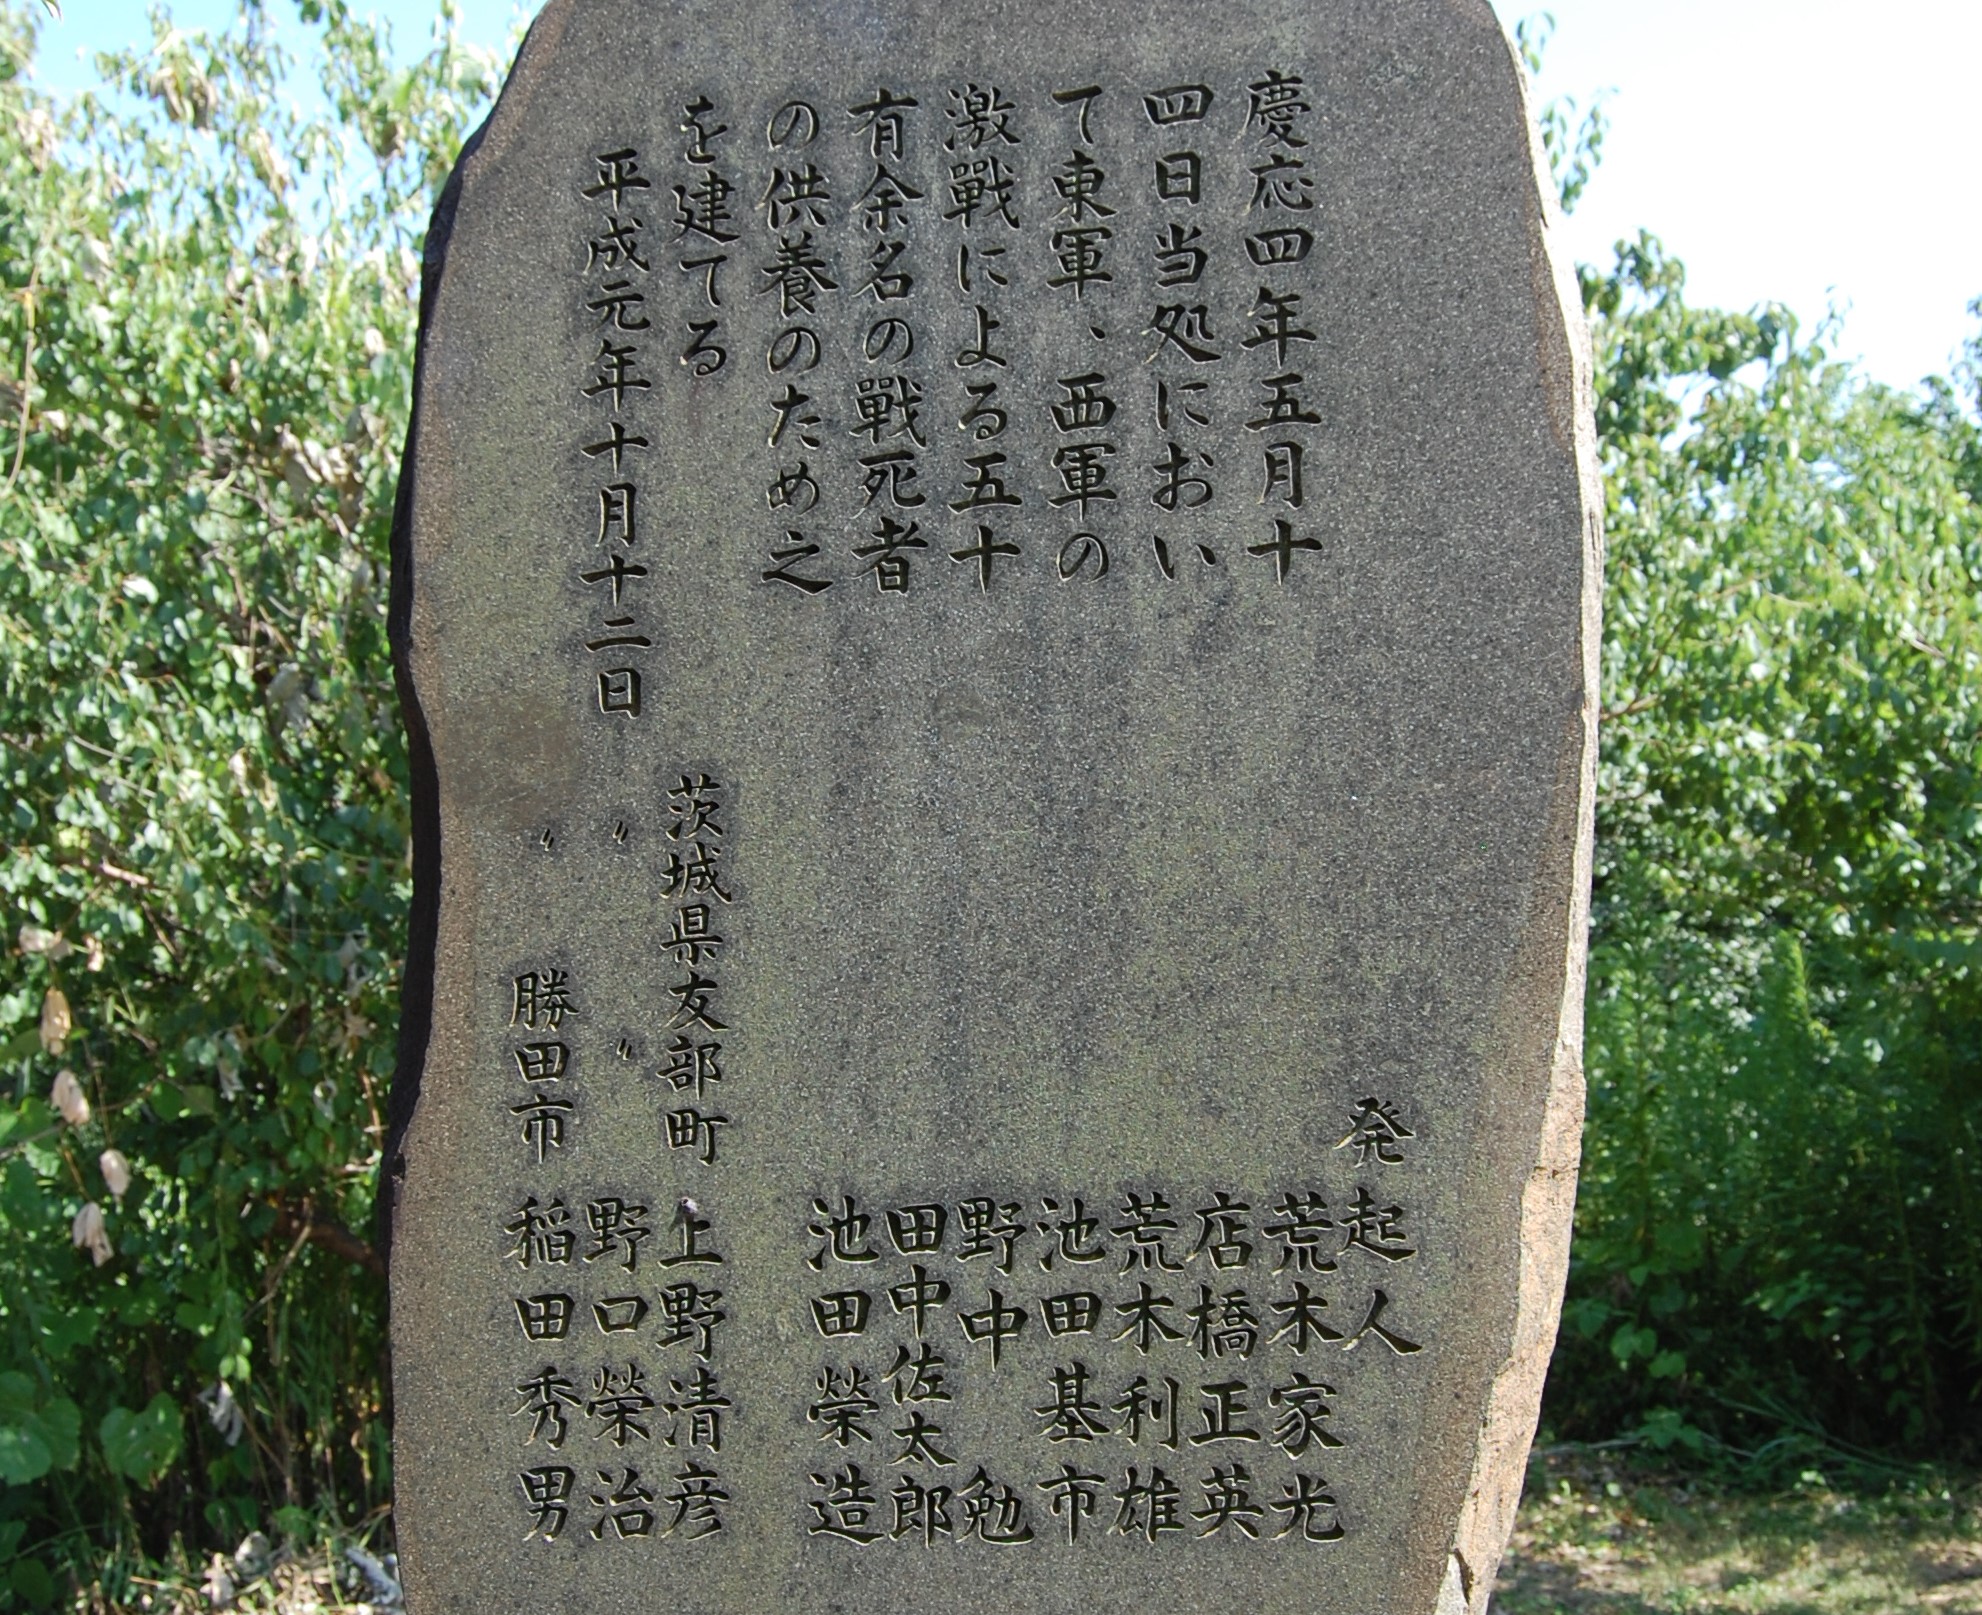 慶応四年五月十
四日当処におい
て東軍、西軍の
激戰による五十
有余名の戰死者
の供養のため之
を建てる
平成元年十月十二日
発起人
荒木家光
店橋正英
荒木利雄
池田基市
野中勉
田中佐太郎
池田榮造
茨城県友部町 上野清彦
〃 〃 野口榮治
〃 勝田市 稲田秀男